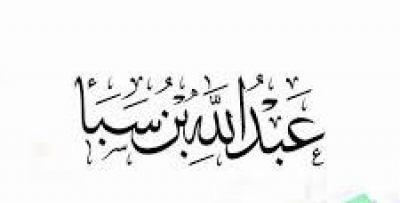 عَبْدُ اللَّهِ بْنُ سَبَأ